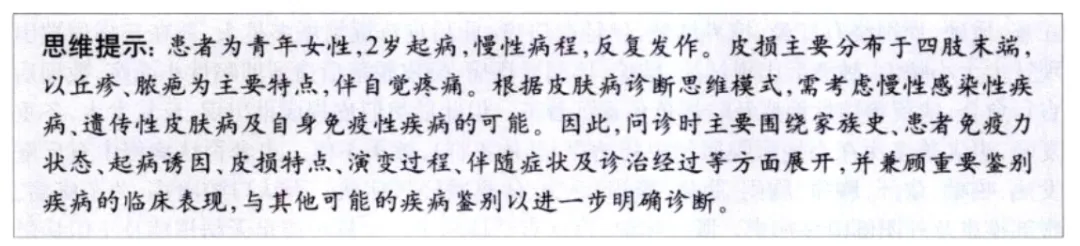 思维提示：患者为青年女性，2岁起病，慢性病程，反复发作。皮损主要分布于四肢末端，
以丘疹、脓疱为主要特点，伴自觉疼痛。根据皮肤病诊断思维模式，需考虑慢性感染性疾
病、遗传性皮肤病及自身免疫性疾病的可能。因此，问诊时主要围绕家族史、患者免疫力
状态、起病诱因、皮损特点、演变过程、伴随症状及诊治经过等方面展开，并兼顾重要鉴别
疾病的临床表现，与其他可能的疾病鉴别以进一步明确诊断。